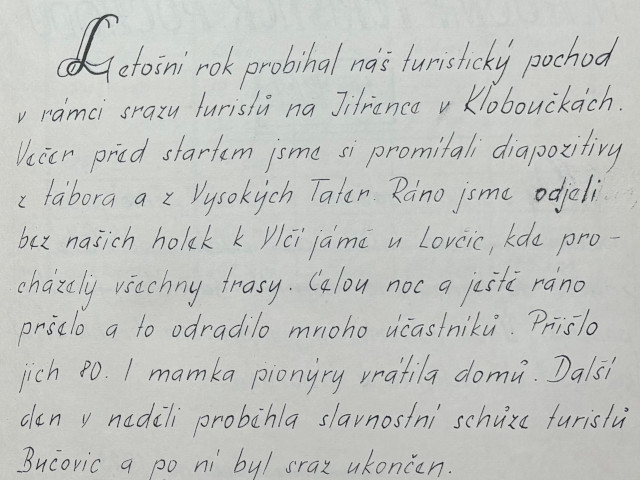 Letošní rok probíhal náš turistický pochod
v rámci srazu turistů na Jitřence v Kloboučkách.
Večer před startem jsme si promítali diapozitivy
z tábora a z Vysokých Tater. Ráno jsme odjeli
bez našich holek k Vlčí jámě u Lovčic, kde pro-
cházely všechny trasy. Celou noc a ještě ráno
pršelo a to odradilo mnoho účastníků. Přišlo
jich 80. I mamka pionýry vrátila domů. Další
den v neděli proběhla slavnostní schůze turistů
Bučovic a po ní byl sraz ukončen.